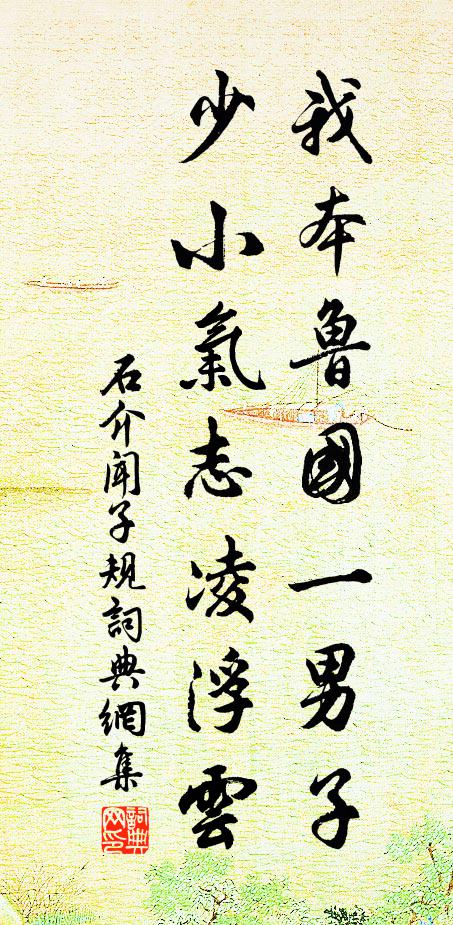 我本魯國一男子
少小氣志凌浮雲
石介聞子規詞典網集
詞典网印